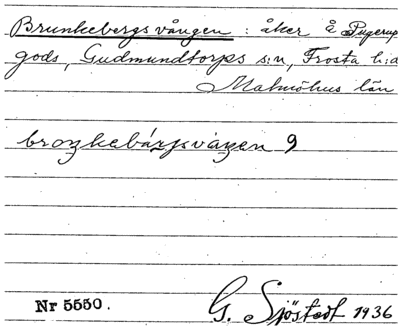 Brunkebergsvången : åker å Pugerup
gods, Gudmundtorps s:n, Frosta h:d
Malmöhus län
Nr 5550.
G. Sjöstedt 1936